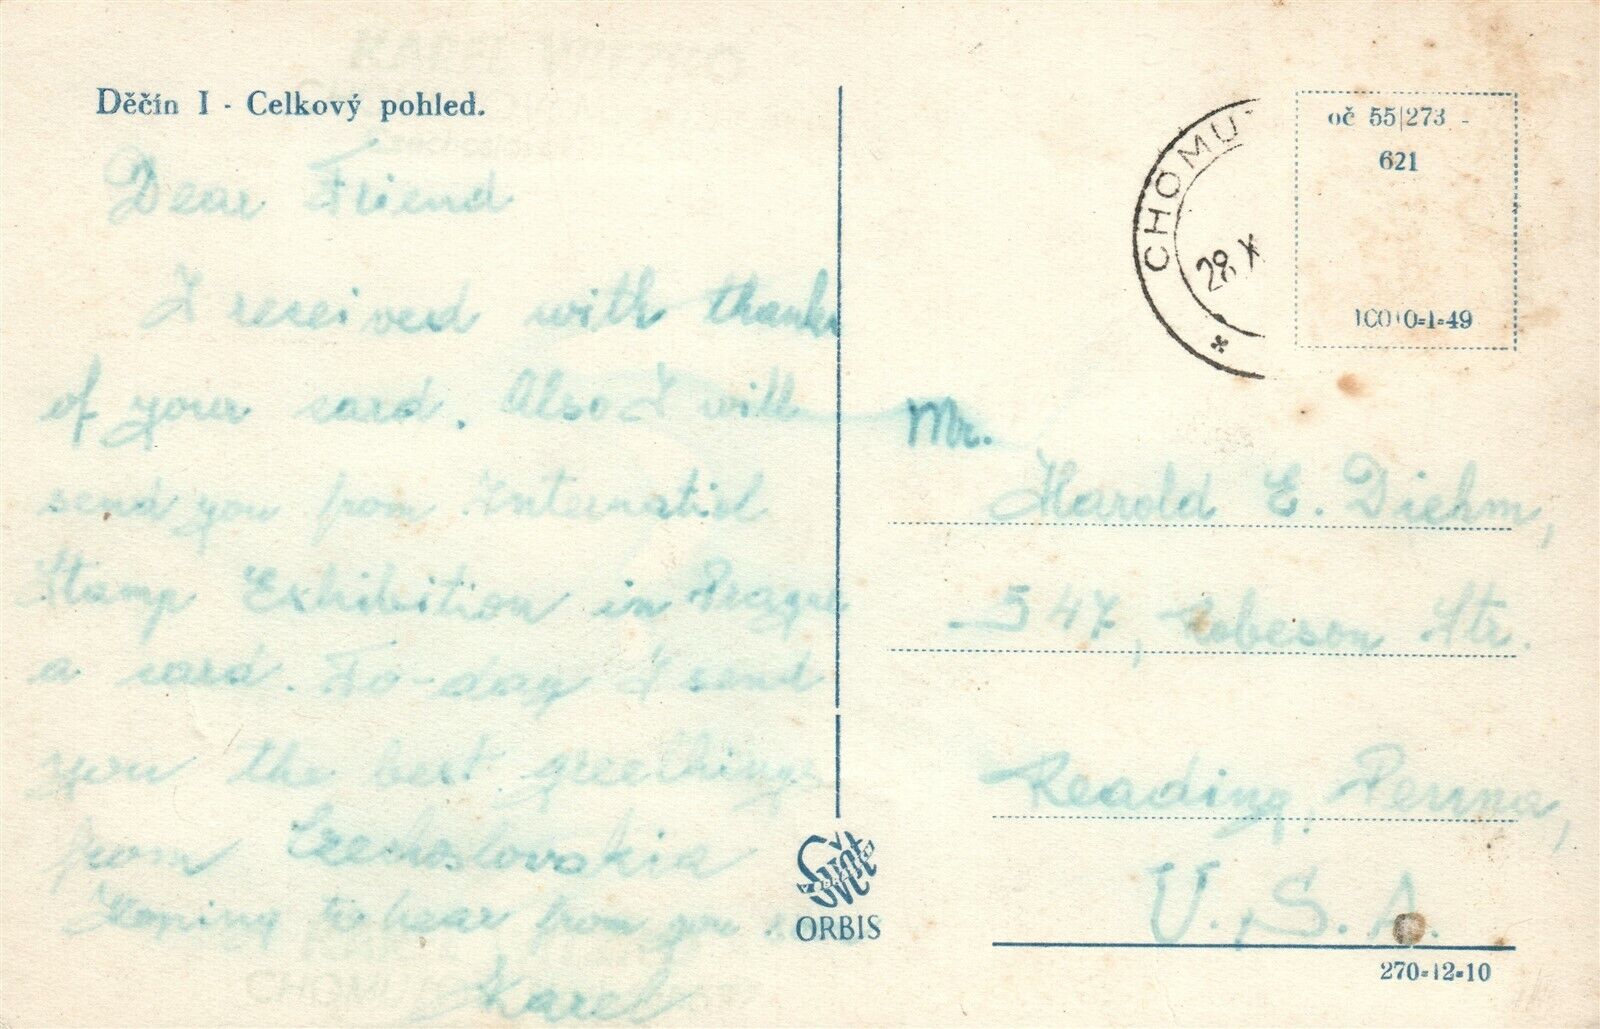 Děčín I - Celkový pohled.
Dear Friend
I received with thanks
of your card. Also I will
send you from Internatiol
Stamp Exhibition in Prague
a card. To-day I send
you the best greethings
from Czechoslovakia
Hoping to hear from you
Karel
CHOMUT
29. X
oč 55|273 -
621
10010-1-49
Mr.
Harold E. Diehm,
547, Robeson Str.
Reading, Penna,
U.S.A.
Svět
ORBIS
270-12-10